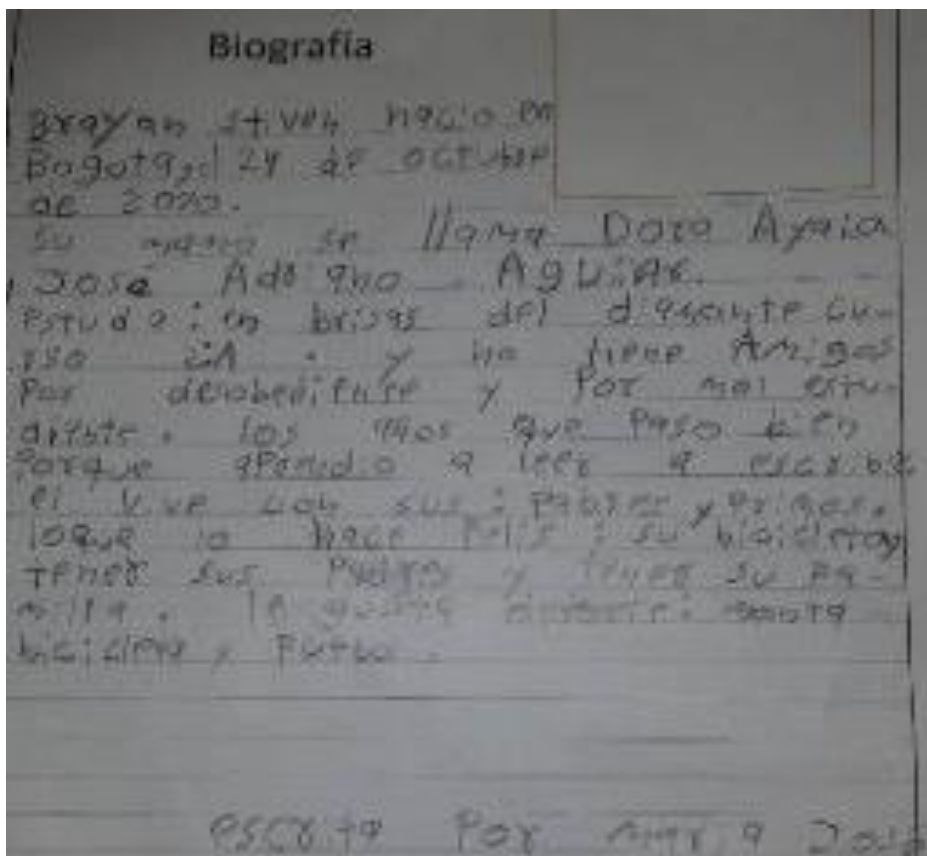 Biografía
Brayan stiven nacio en
Bogota, el 24 de octubre
de 2010.
su mamá se llama Dora Ayala
José Ado Aguiar.
estudo: en brisas del diamante cu-
rso y no tiene Amigos
Por desobediente y Por mal estu-
diante. los años que Paso bien
Porque aPendio a leer a escribir
el vive con sus: Padres y
loque lo hace Felis: su bicicleta y
tener sus Padres y tener su Fa-
milia. le gusta monta
bicicleta y Futbo.
escrita Por